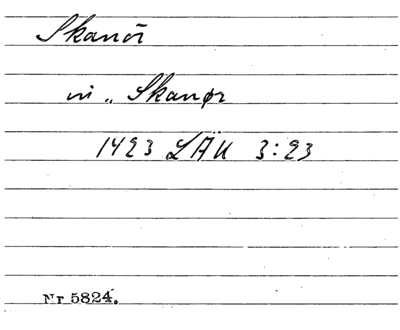 Skanör
vi „ Skanør
1423 LÄU 3:23
Nr 5824.